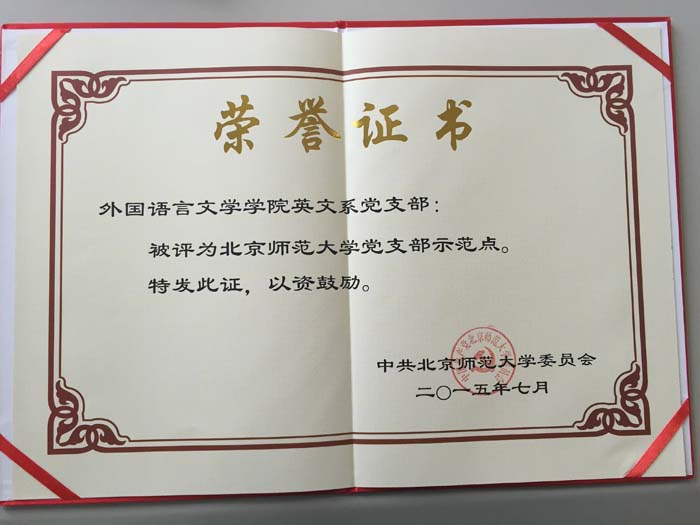 荣誉证书
外国语言文学学院英文系党支部：
被评为北京师范大学党支部示范点。
特发此证，以资鼓励。
中共北京师范大学委员会
二〇一五年七月